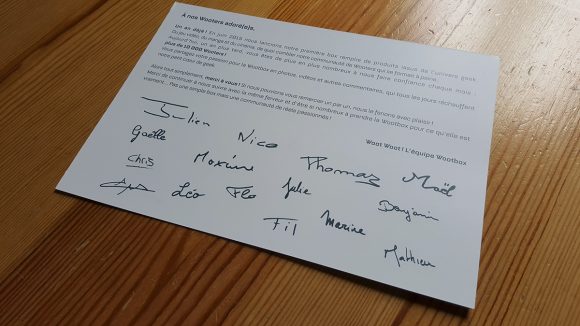 À nos Wooters adoré(e)s,
Un an déjà ! En juin 2015 nous lancions notre première box remplie de produits issus de l'univers geek,
du jeu vidéo, du manga et du cinéma, de quoi combler notre communauté de Wooters qui se formait à peine.
Aujourd'hui, un an plus tard, vous êtes de plus en plus nombreux à nous faire confiance chaque mois :
plus de 10 000 Wooters !
Vous partagez votre passion pour la Wootbox en photos, vidéos et autres commentaires, qui tous les jours réchauffent
notre petit cœur de geek.
Alors tout simplement, merci à vous ! Si nous pouvions vous remercier un par un, nous le ferions avec plaisir !
Merci de continuer à nous suivre avec la même ferveur et d'être si nombreux à prendre la Wootbox pour ce qu'elle est
vraiment... Pas une simple box mais une communauté de réels passionnés !
Woot Woot ! L'équipe Wootbox
Julien Nico Thomas Maël
Gaëlle Maxime Benjamin
Chris Léo Flo Julie
Fil Marine Mathieu